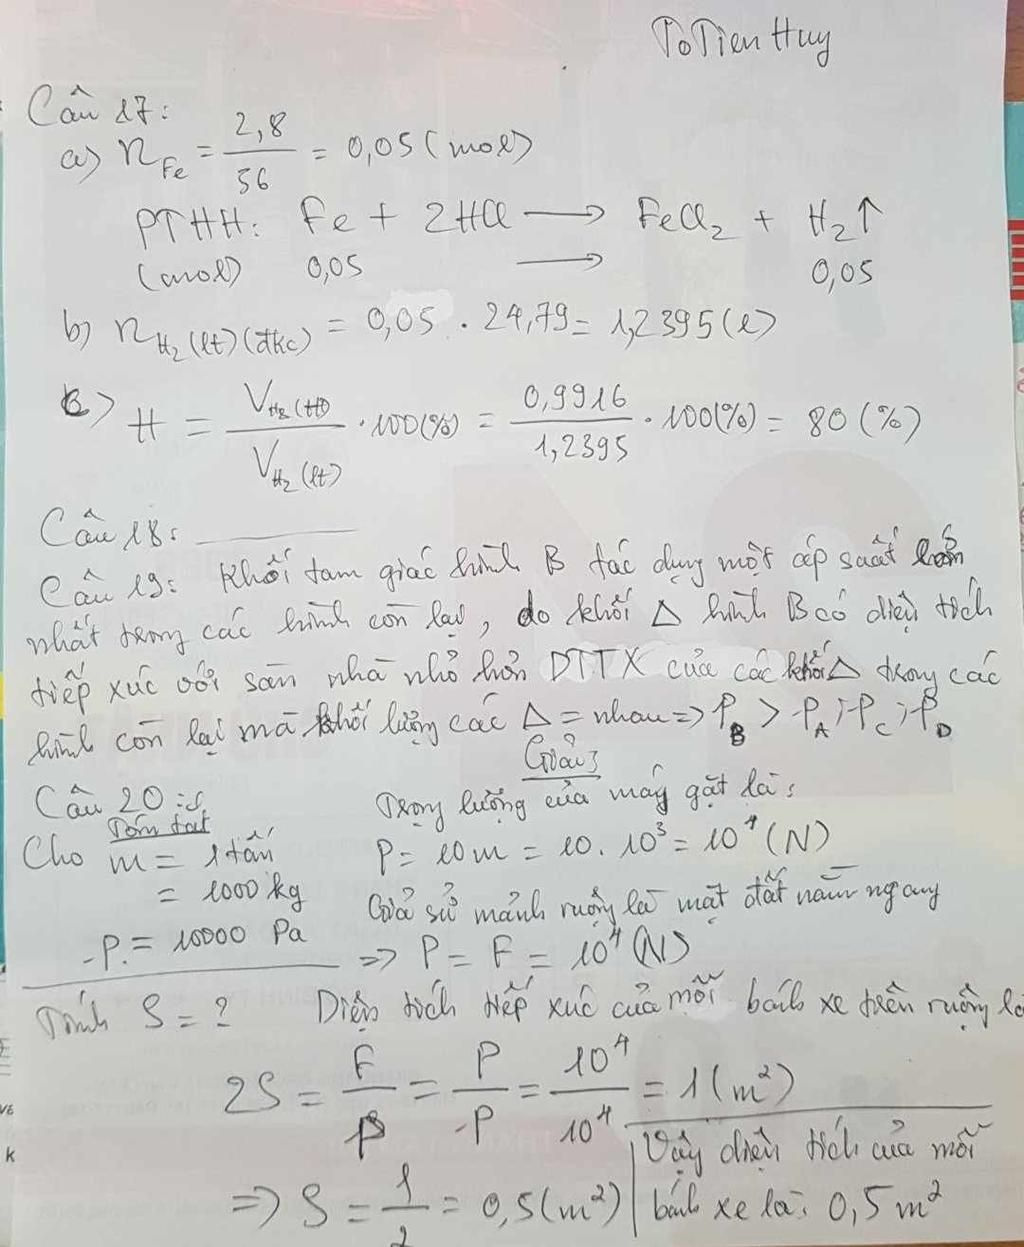 Tô Tiến Huy
Câu 17:
a) n Fe = 2,8 / 56 = 0,05 (mol)
PTHH: Fe + 2HCl → FeCl₂ + H₂↑
(mol) 0,05 → 0,05
b) n H₂ (lt) (đkc) = 0,05 . 24,79 = 1,2395 (l)
c) H = V H₂ (tt) / V H₂ (lt) . 100(%) = 0,9916 / 1,2395 . 100(%) = 80 (%)
Câu 18:
Câu 19: Khối tam giác hình B tác dụng một áp suất lớn
nhất trong các hình còn lại, do khối Δ hình B có diện tích
tiếp xúc với sàn nhà nhỏ hơn DTTX của các khối Δ trong các
hình còn lại mà khối lượng các Δ = nhau => P B > P A ; P C ; P D
Câu 20:
Tóm tắt
Cho m = 1 tấn
= 1000 kg
P = 10000 Pa
Tính S = ?
Giải
Trọng lượng của máy gặt là:
P = 10m = 10. 10³ = 10⁴ (N)
Giả sử mảnh ruộng là mặt đất nằm ngang
=> P = F = 10⁴ (N)
Diện tích tiếp xúc của mỗi bánh xe trên ruộng là
2S = F / p = P / p = 10⁴ / 10⁴ = 1 (m²)
=> S = 1 / 2 = 0,5 (m²)
Vậy diện tích của mỗi
bánh xe là: 0,5 m²